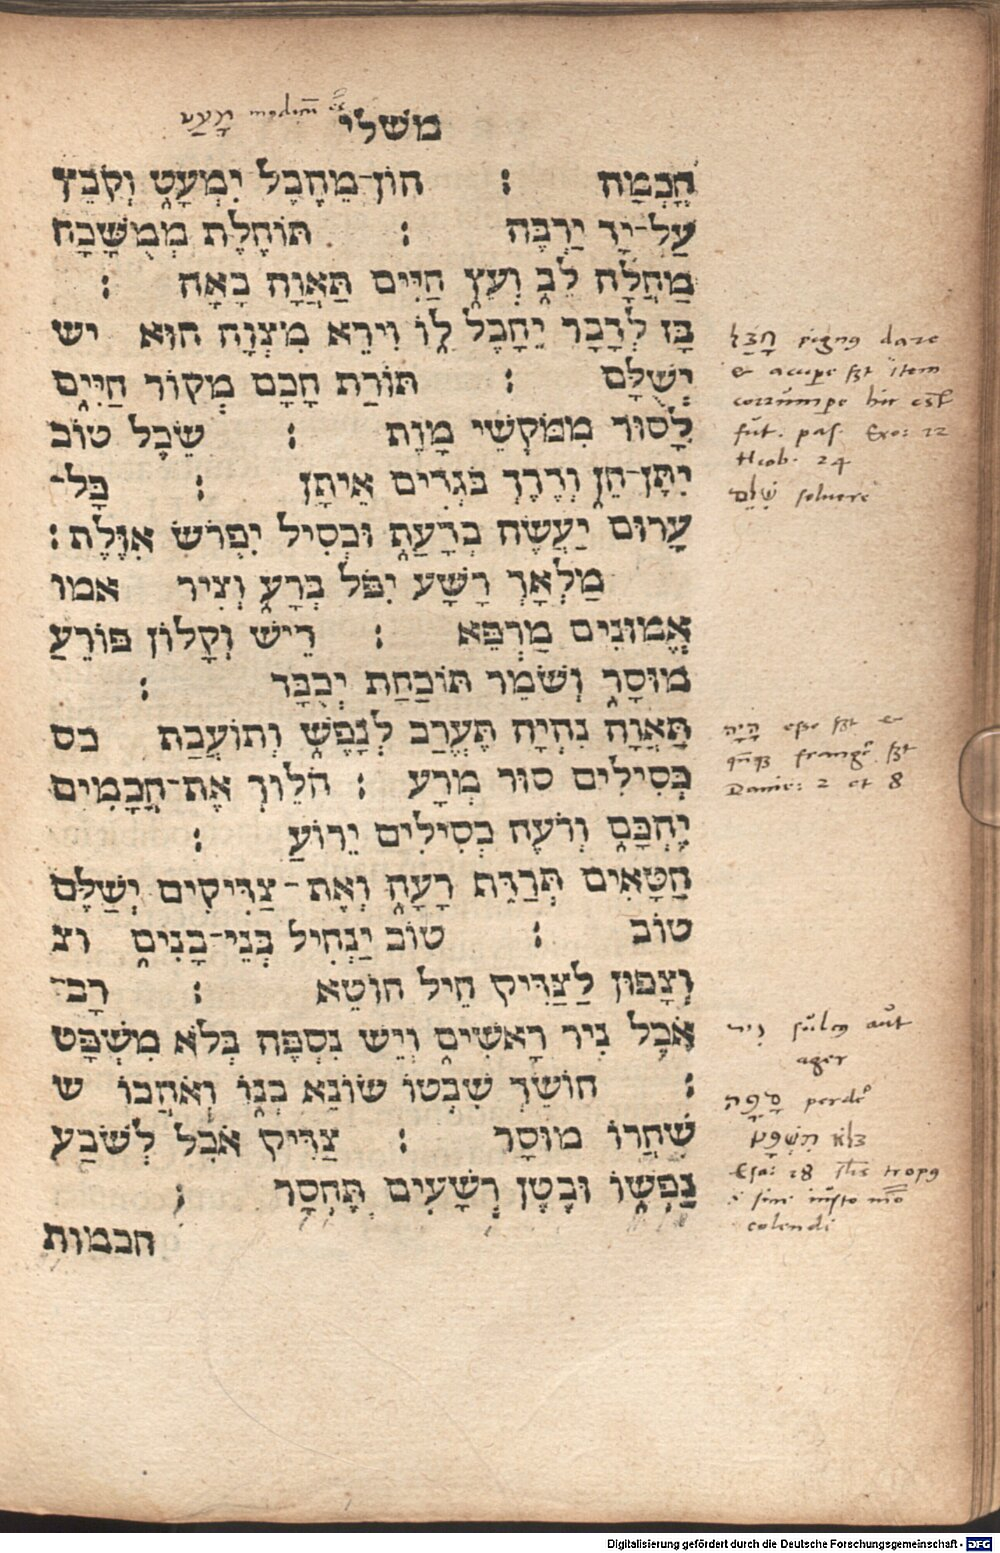 משלי
חָכְמָה : הוֹן־מֵהֶבֶל יִמְעָט וְקֹבֵץ
עַל־יָד יַרְבֶּה : תּוֹחֶלֶת מְמֻשָּׁכָה
מַחֲלָה לֵב וְעֵץ חַיִּים תַּאֲוָה בָאָה :
בָּז לְדָבָר יֵחָבֶל לוֹ וִירֵא מִצְוָה הוּא יש
יְשֻׁלָּם : תּוֹרַת חָכָם מְקוֹר חַיִּים
לָסוּר מִמֹּקְשֵׁי מָוֶת : שֵׂכֶל טוֹב
יִתֶּן־חֵן וְדֶרֶךְ בֹּגְדִים אֵיתָן : כָּל־
עָרוּם יַעֲשֶׂה בְדָעַת וּכְסִיל יִפְרֹשׂ אִוֶּלֶת :
מַלְאָךְ רָשָׁע יִפֹּל בְּרָע וְצִיר אמו
אֱמוּנִים מַרְפֵּא : רֵישׁ וְקָלוֹן פּוֹרֵעַ
מוּסָר וְשֹׁמֵר תּוֹכַחַת יְכֻבָּד :
תַּאֲוָה נִהְיָה תֶּעֱרַב לְנָפֶשׁ וְתוֹעֲבַת כס
כְּסִילִים סוּר מְרָע : הֹלֵוךְ אֶת־חֲכָמִים
יֶחְכָּם וְרֹעֶה כְסִילִים יֵרוֹעַ :
חַטָּאִים תְּרַדֵּת רָעָה וְאֶת־צַדִּיקִים יְשַׁלֶּם
טוֹב : טוֹב יַנְחִיל בְּנֵי־בָנִים וצ
וְצָפוּן לַצַּדִּיק חֵיל חוֹטֵא : רָב־
אֹכֶל נִיר רָאשִׁים וְיֵשׁ נִסְפֶּה בְּלֹא מִשְׁפָּט
: חוֹשֵׂךְ שִׁבְטוֹ שׂוֹנֵא בְנוֹ וְאֹהֲבוֹ ש
שִׁחֲרוֹ מוּסָר : צַדִּיק אֹכֵל לְשֹׂבַע
נַפְשׁוֹ וּבֶטֶן רְשָׁעִים תֶּחְסָר :
חכמות
dare
Item
corrumpe hic est
fut. pas. Exo: 22
24
שִׁלֵּם solvere
הָיָה
Danie: 2 et 8
ניר
ager
סָפָה
Esa: 28
colendi